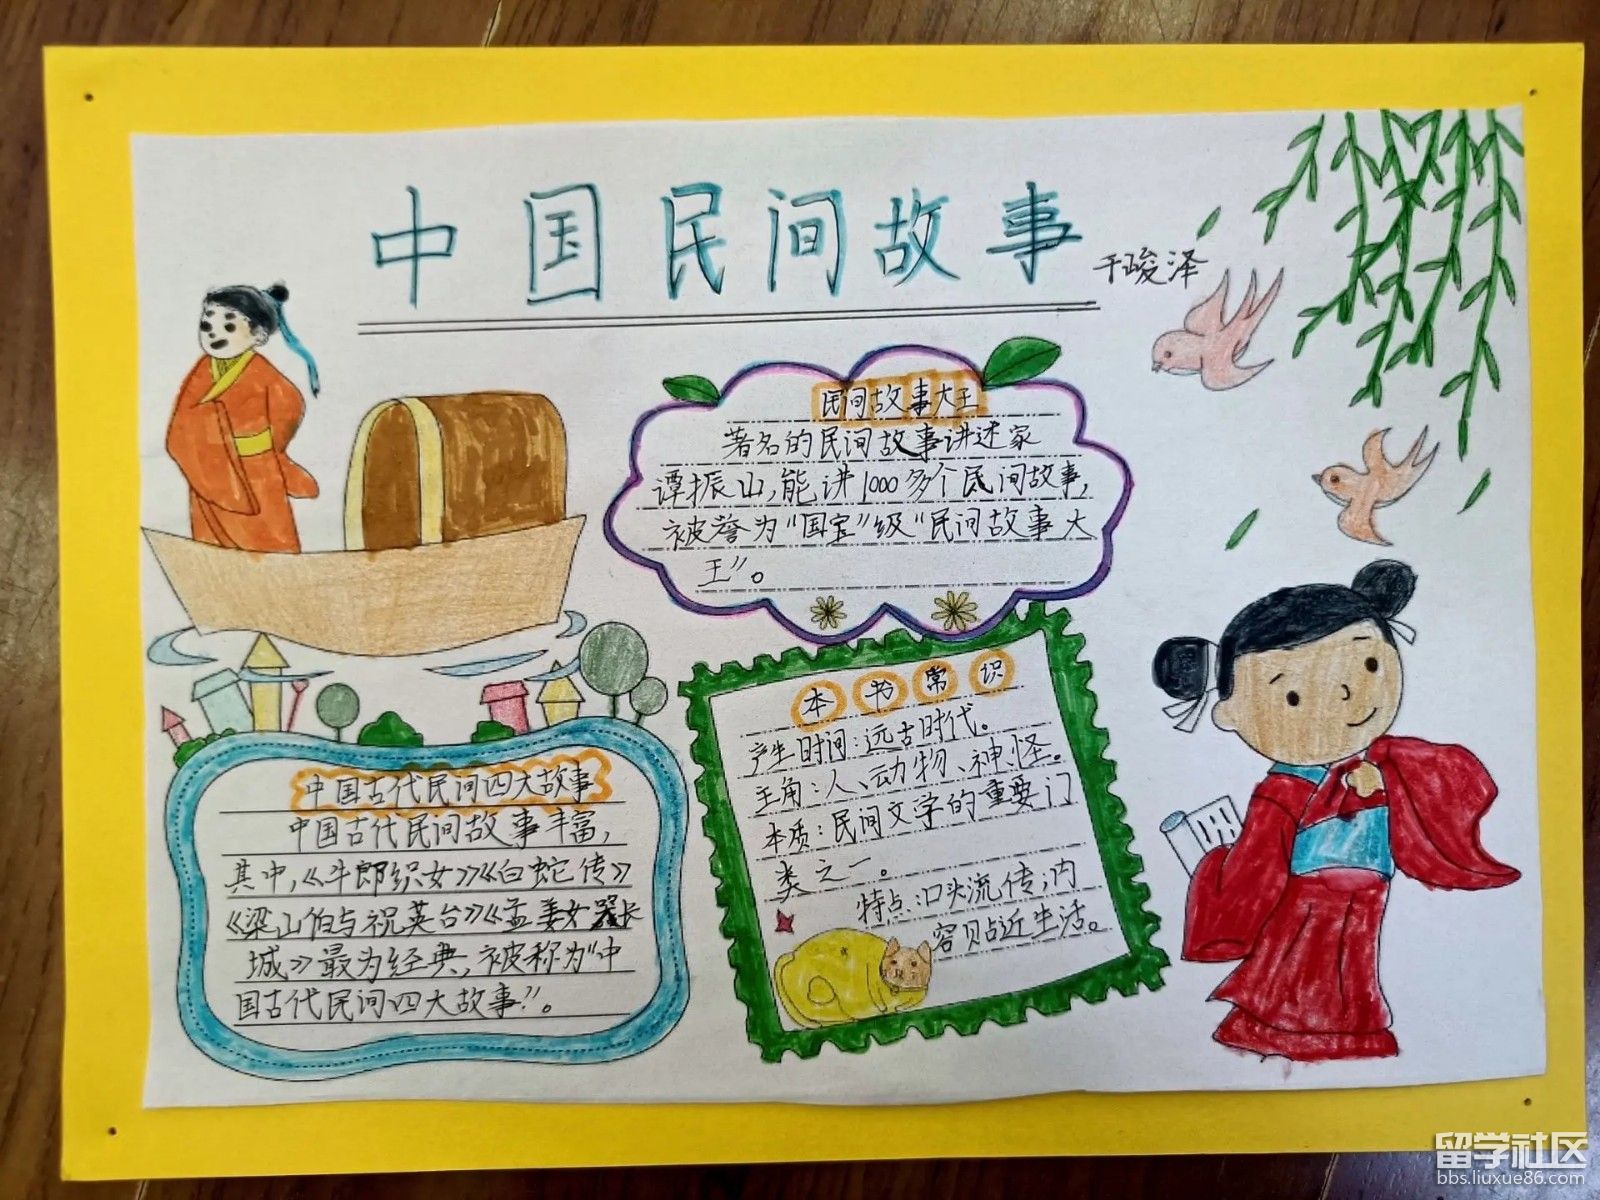 中国民间故事
于峻泽
民间故事大王
著名的民间故事讲述家
谭振山,能讲1000多个民间故事,
被誉为“国宝”级“民间故事大
王”。
本书常识
产生时间:远古时代。
主角:人、动物、神、怪。
本质:民间文学的重要门
类之一。
特点:口头流传,内
容贴近生活。
中国古代民间四大故事
中国古代民间故事丰富,
其中,《牛郎织女》《白蛇传》
《梁山伯与祝英台》《孟姜女哭长
城》最为经典,被称为“中
国古代民间四大故事”。
留学社区
bbs.liuxue86.com